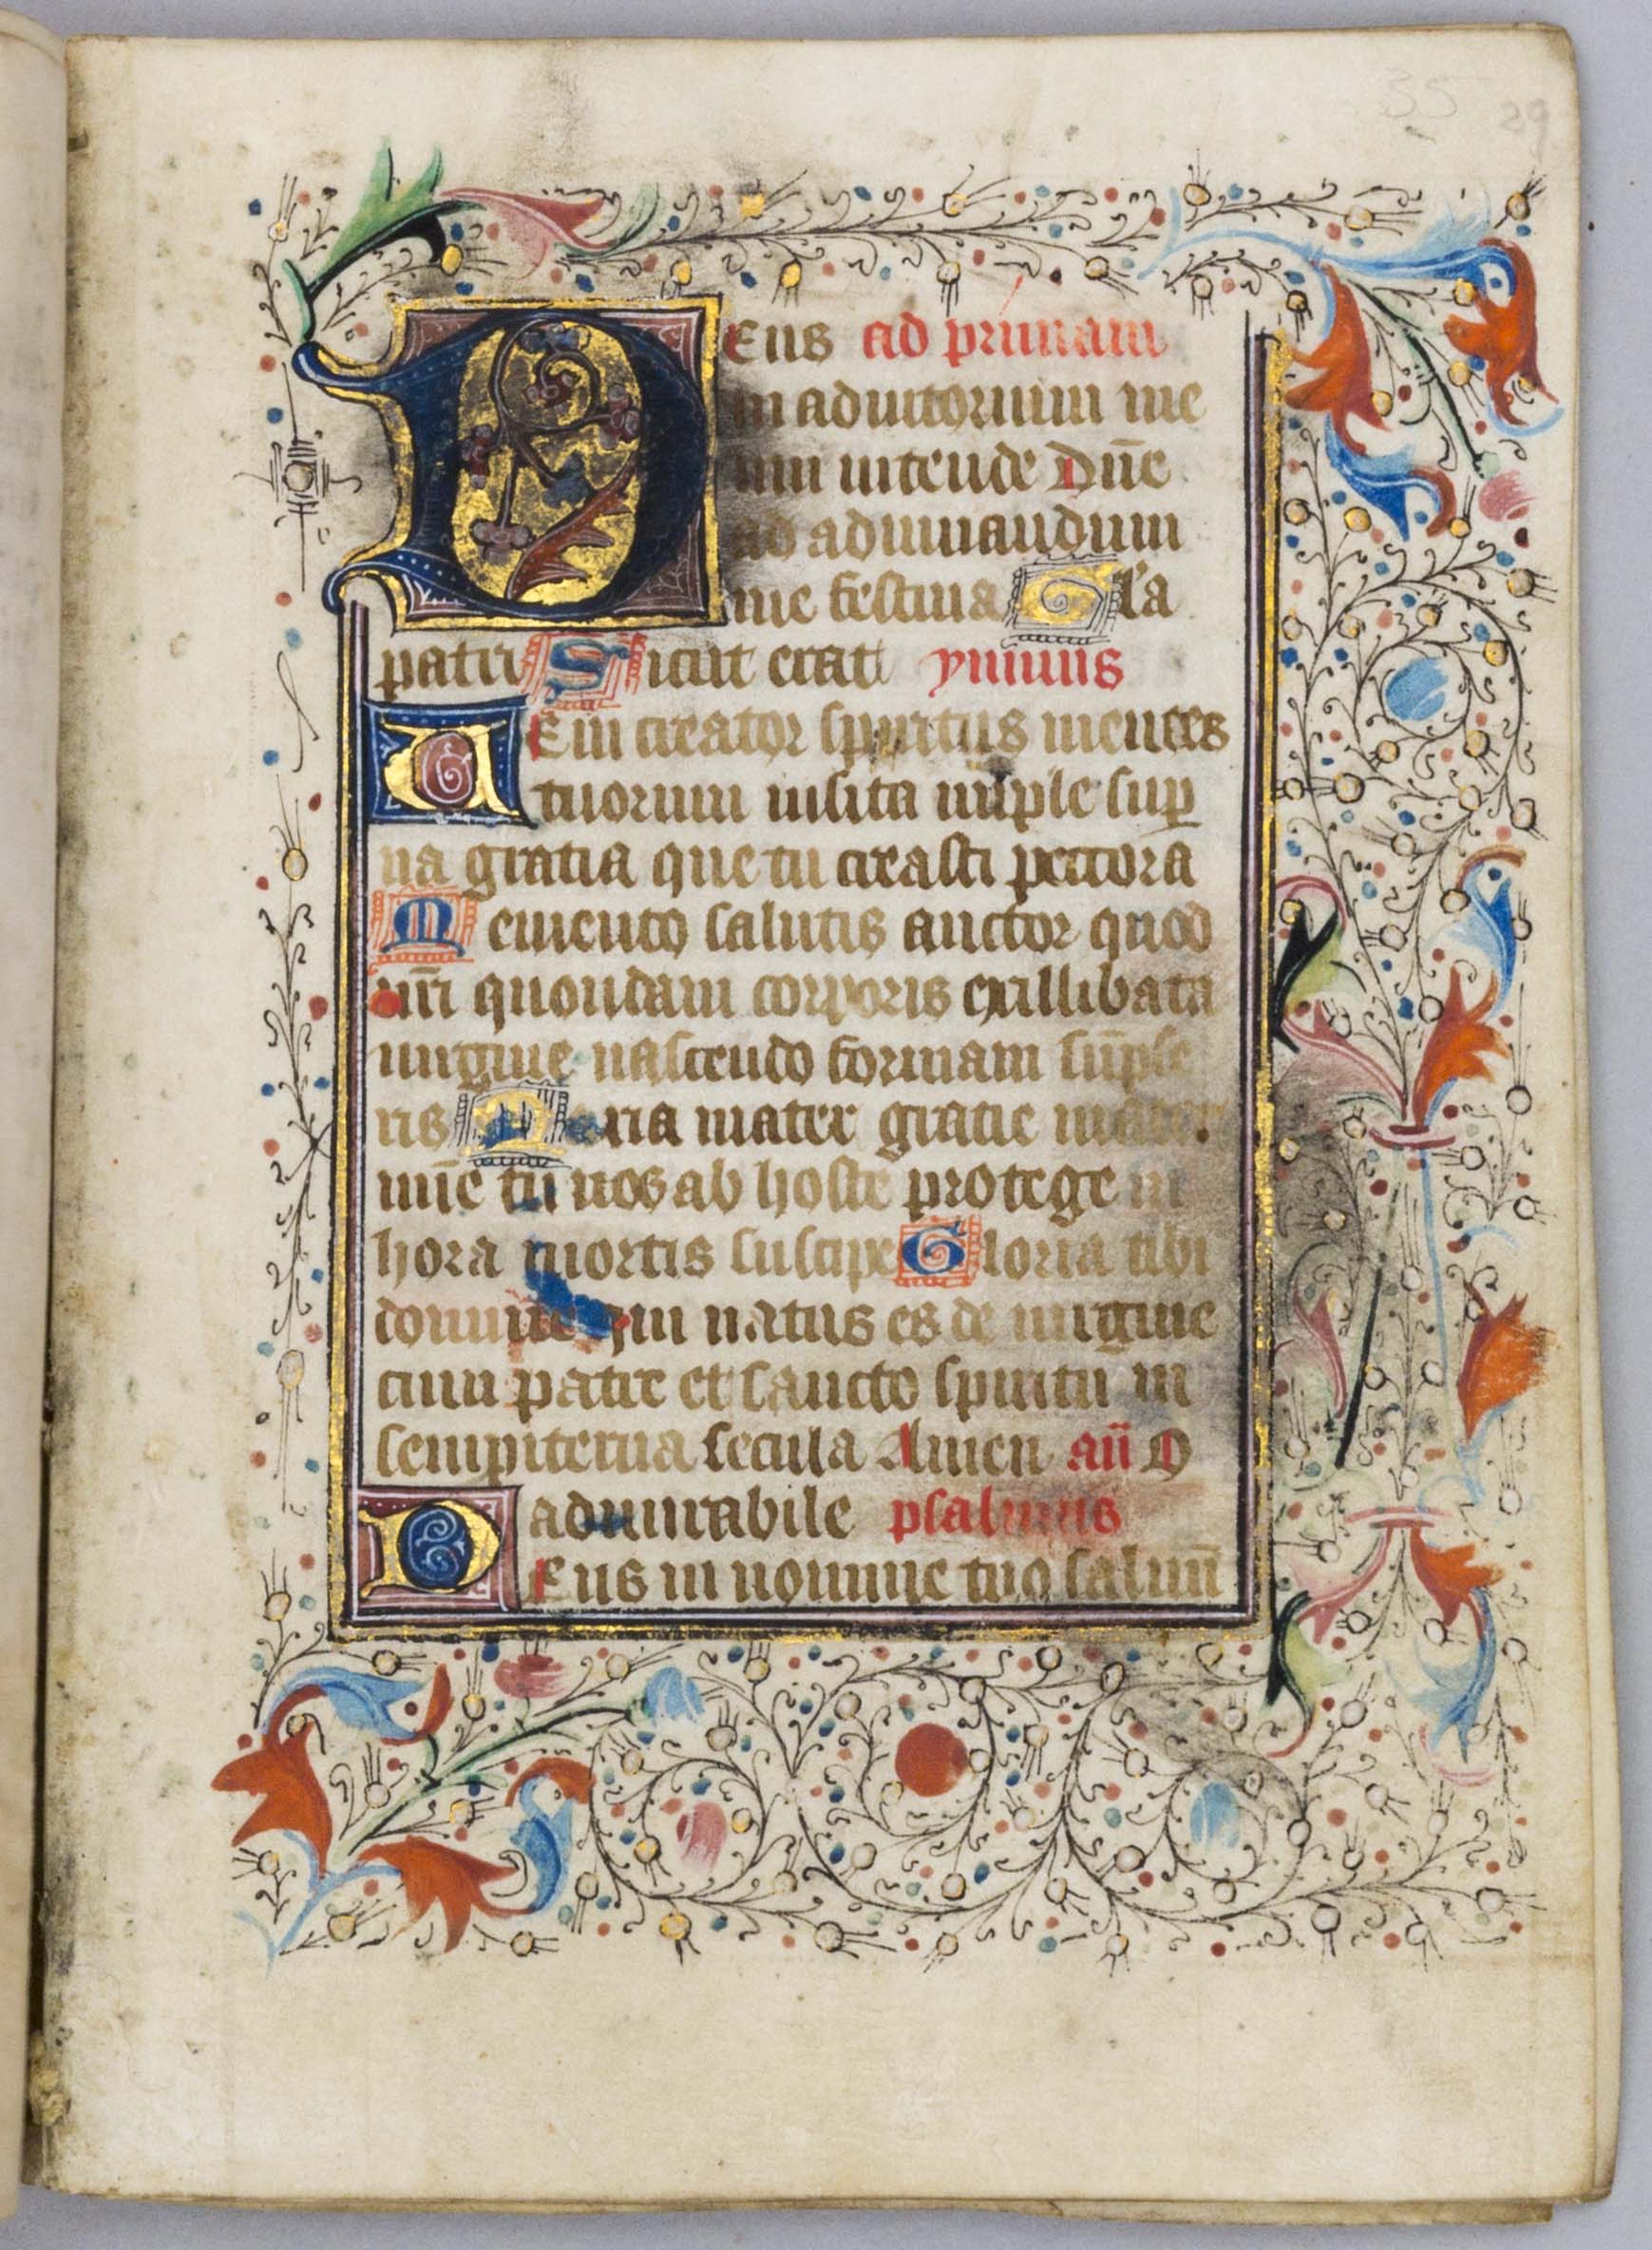 35 29
Deus ad primam
in adiutorium me
um intende Dn̄e
ad adiuuandum
me festina Gl'a
patri Sicut erat ymnus
Veni creator spiritus mentes
tuorum uisita imple sup̲
na gratia que tu creasti pectora
Memento salutis auctor quod
nr̄i quondam corporis ex illibata
uirgine nascendo formam sūpse
ris Maria mater gratie mater
mīe tu nos ab hoste protege in
hora mortis suscipe Gloria tibi
domine qui natus es de uirgine
cum patre et sancto spiritu in
sempiterna secula Amen an̄ O
admirabile psalmus
Deus in nomine tuo saluū